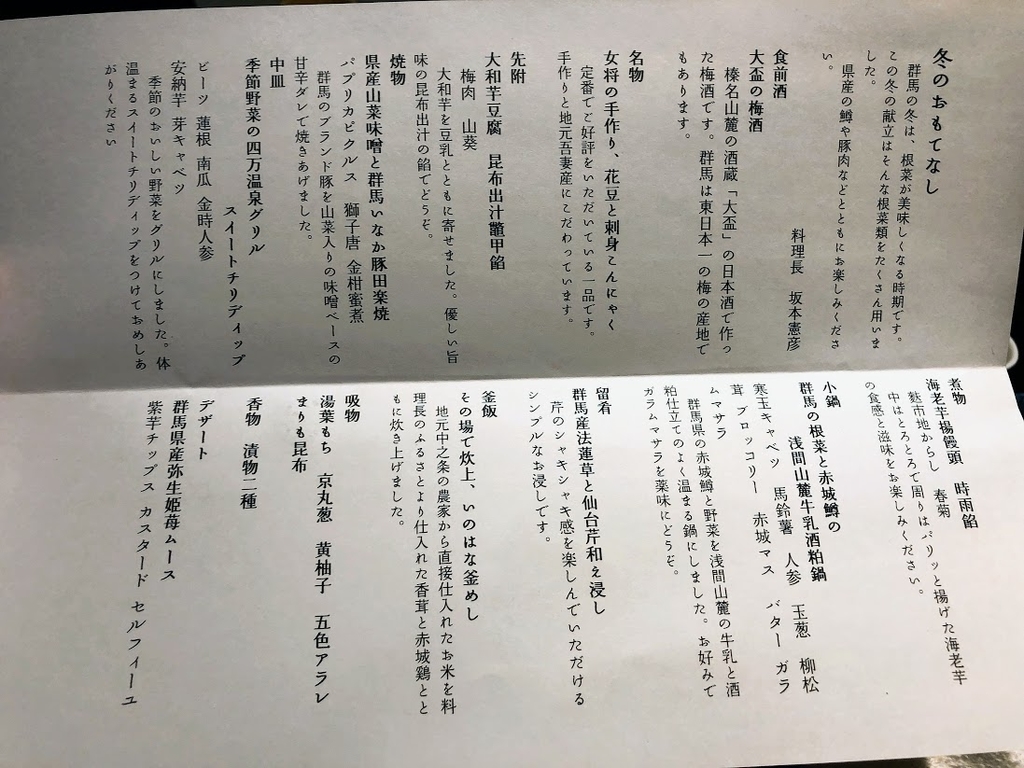 冬のおもてなし
群馬の冬は、根菜が美味しくなる時期です。
この冬の献立はそんな根菜類をたくさん用いま
した。
県産の鱒や豚肉などとともにお楽しみくださ
い。
料理長　坂本憲彦
食前酒
大盃の梅酒
榛名山麓の酒蔵「大盃」の日本酒で作っ
た梅酒です。群馬は東日本一の梅の産地で
もあります。
名物
女将の手作り、花豆と刺身こんにゃく
定番でご好評をいただいている一品です。
手作りと地元吾妻産にこだわっています。
先附
大和芋豆腐　昆布出汁鼈甲餡
梅肉　山葵
大和芋を豆乳とともに寄せました。優しい旨
味の昆布出汁の餡でどうぞ。
焼物
県産山菜味噌と群馬いなか豚田楽焼
パプリカピクルス　獅子唐　金柑蜜煮
群馬のブランド豚を山菜入りの味噌ベースの
甘辛ダレで焼きあげました。
中皿
季節野菜の四万温泉グリル
スイートチリディップ
ビーツ　蓮根　南瓜　金時人参
安納芋　芽キャベツ
季節のおいしい野菜をグリルにしました。体
温まるスイートチリディップをつけておめしあ
がりください
煮物
海老芋揚饅頭　時雨餡
麩市地からし　春菊
中はとろとろで周りはパリッと揚げた海老芋
の食感と滋味をお楽しみください。
小鍋
群馬の根菜と赤城鱒の
浅間山麓牛乳酒粕鍋
寒玉キャベツ　馬鈴薯　人参　玉葱　柳松
茸　ブロッコリー　赤城マス　バター　ガラ
ムマサラ
群馬県の赤城鱒と野菜を浅間山麓の牛乳と酒
粕仕立てのよく温まる鍋にしました。お好みで
ガラムマサラを薬味にどうぞ。
留肴
群馬産法蓮草と仙台芹和え浸し
芹のシャキシャキ感を楽しんでいただける
シンプルなお浸しです。
釜飯
その場で炊上、いのはな釜めし
地元中之条の農家から直接仕入れたお米を料
理長のふるさとより仕入れた香茸と赤城鶏とと
もに炊き上げました。
吸物
湯葉もち　京丸葱　黄柚子　五色アラレ
まりも昆布
香物　漬物二種
デザート
群馬県産弥生姫苺ムース
紫芋チップス　カスタード　セルフィーユ